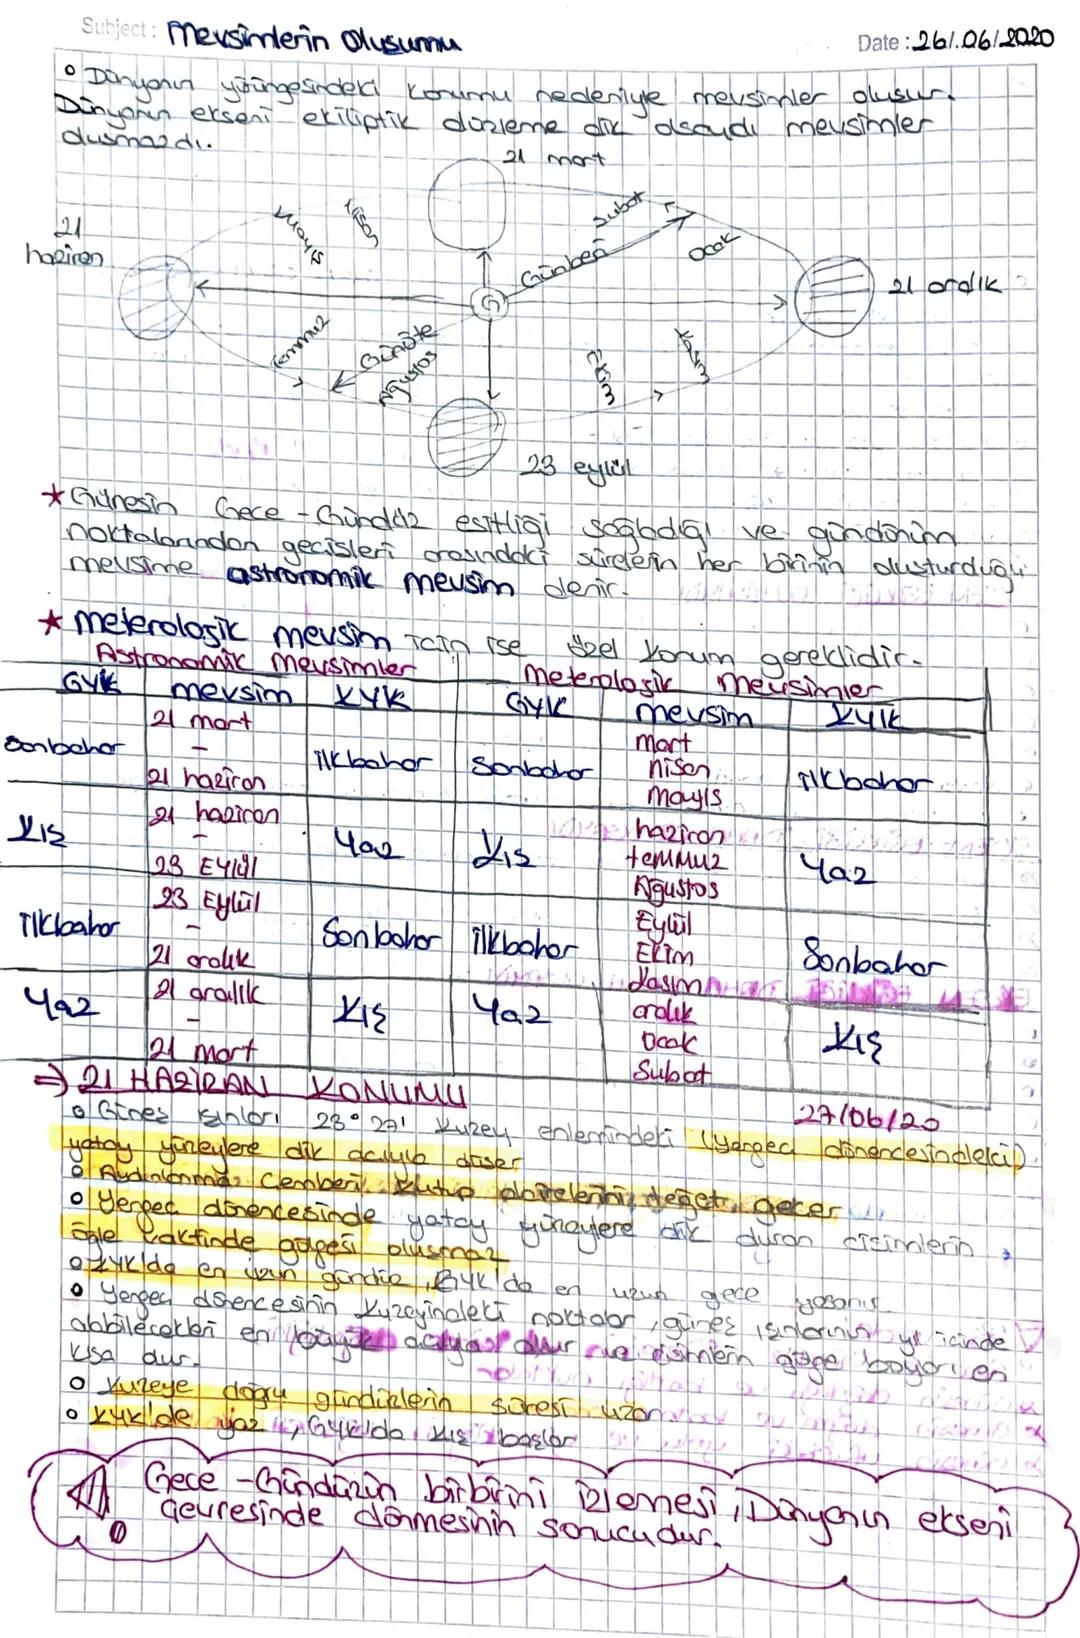 Subject: Mevsimlerin Oluşumu
Date: 26/.06/2020
o Dünyanın yörüngesindeki konumu nedeniyle mevsimler oluşur.
Dünyanın ekseni ekliptik düzleme dik olsaydı mevsimler
oluşmazdı.
21 mart
21 haziran
Mayıs
Nisan
Şubat
Ocak
Günberi
G
21 aralık
Temmuz
Günöte
Ağustos
Ekim
Kasım
23 eylül
★ Güneşin Gece-Gündüz eşitliği sağladığı ve gündönüm
noktalarından geçişleri arasındaki sürelerin her birinin oluşturduğu
mevsime astronomik mevsim denir.
★ meterolojik mevsim için ise özel konum gereklidir.
Astronomik Mevsimler
Meterolojik Mevsimler
GYK mevsim KYK GYK mevsim KYK
Sonbahar 21 mart - 21 haziran ilkbahar Sonbahar Mart nisan mayıs ilkbahar
Kış 21 haziran - 23 Eylül Yaz Kış haziran temmuz Ağustos Yaz
ilkbahar 23 Eylül - 21 aralık Sonbahar ilkbahar Eylül Ekim Kasım Sonbahar
Yaz 21 aralık - 21 mart Kış Yaz aralık Ocak Şubat Kış
⇒ 21 HAZİRAN KONUMU
27/06/20
o Güneş ışınları 23° 27' kuzey enlemindeki (yengeç dönencesindeki)
yatay yüzeylere dik açıyla düşer
o Aydınlanma Çemberi kutup dairelerini teğet geçer
o Yengeç dönencesinde yatay yüzeylere dik duran cisimlerin
öğle vaktinde gölgesi oluşmaz
o KYK'da en uzun gündüz, GYK'da en uzun gece yaşanır
o Yengeç dönencesinin kuzeyindeki noktalar, güneş ışınlarının yıl içinde
alabilecekleri en büyük açıyı alır ve cisimlerin gölge boyları en
kısa dur.
o Kuzeye doğru gündüzlerin süresi uzar.
o KYK'de yaz, GYK'da kış başlar
Gece-Gündüzün birbirini izlemesi, Dünyanın ekseni
çevresinde dönmesinin sonucudur.